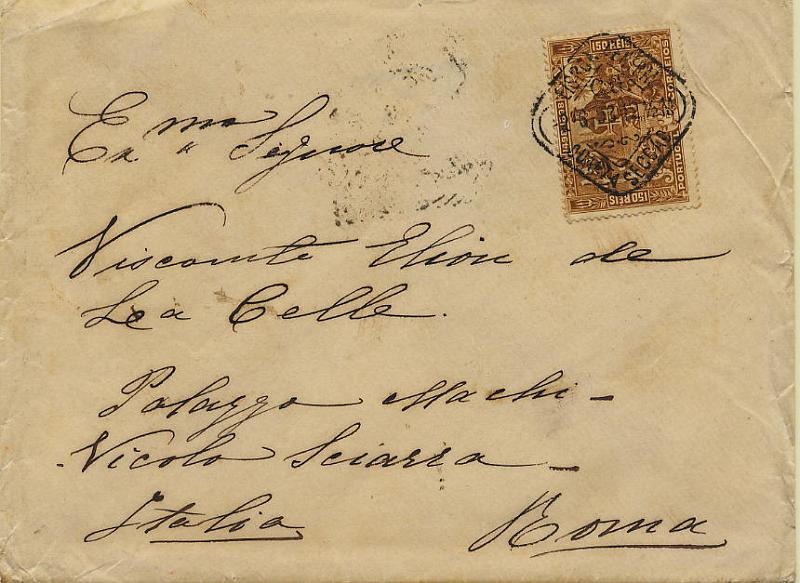 Ex.ma Signore
Viscomte Elion de
La Celle.
Palazzo Machi-
Vicolo Sciarra -
Italia Roma
150 REIS
CORREIOS
PORTUGAL
150 REIS